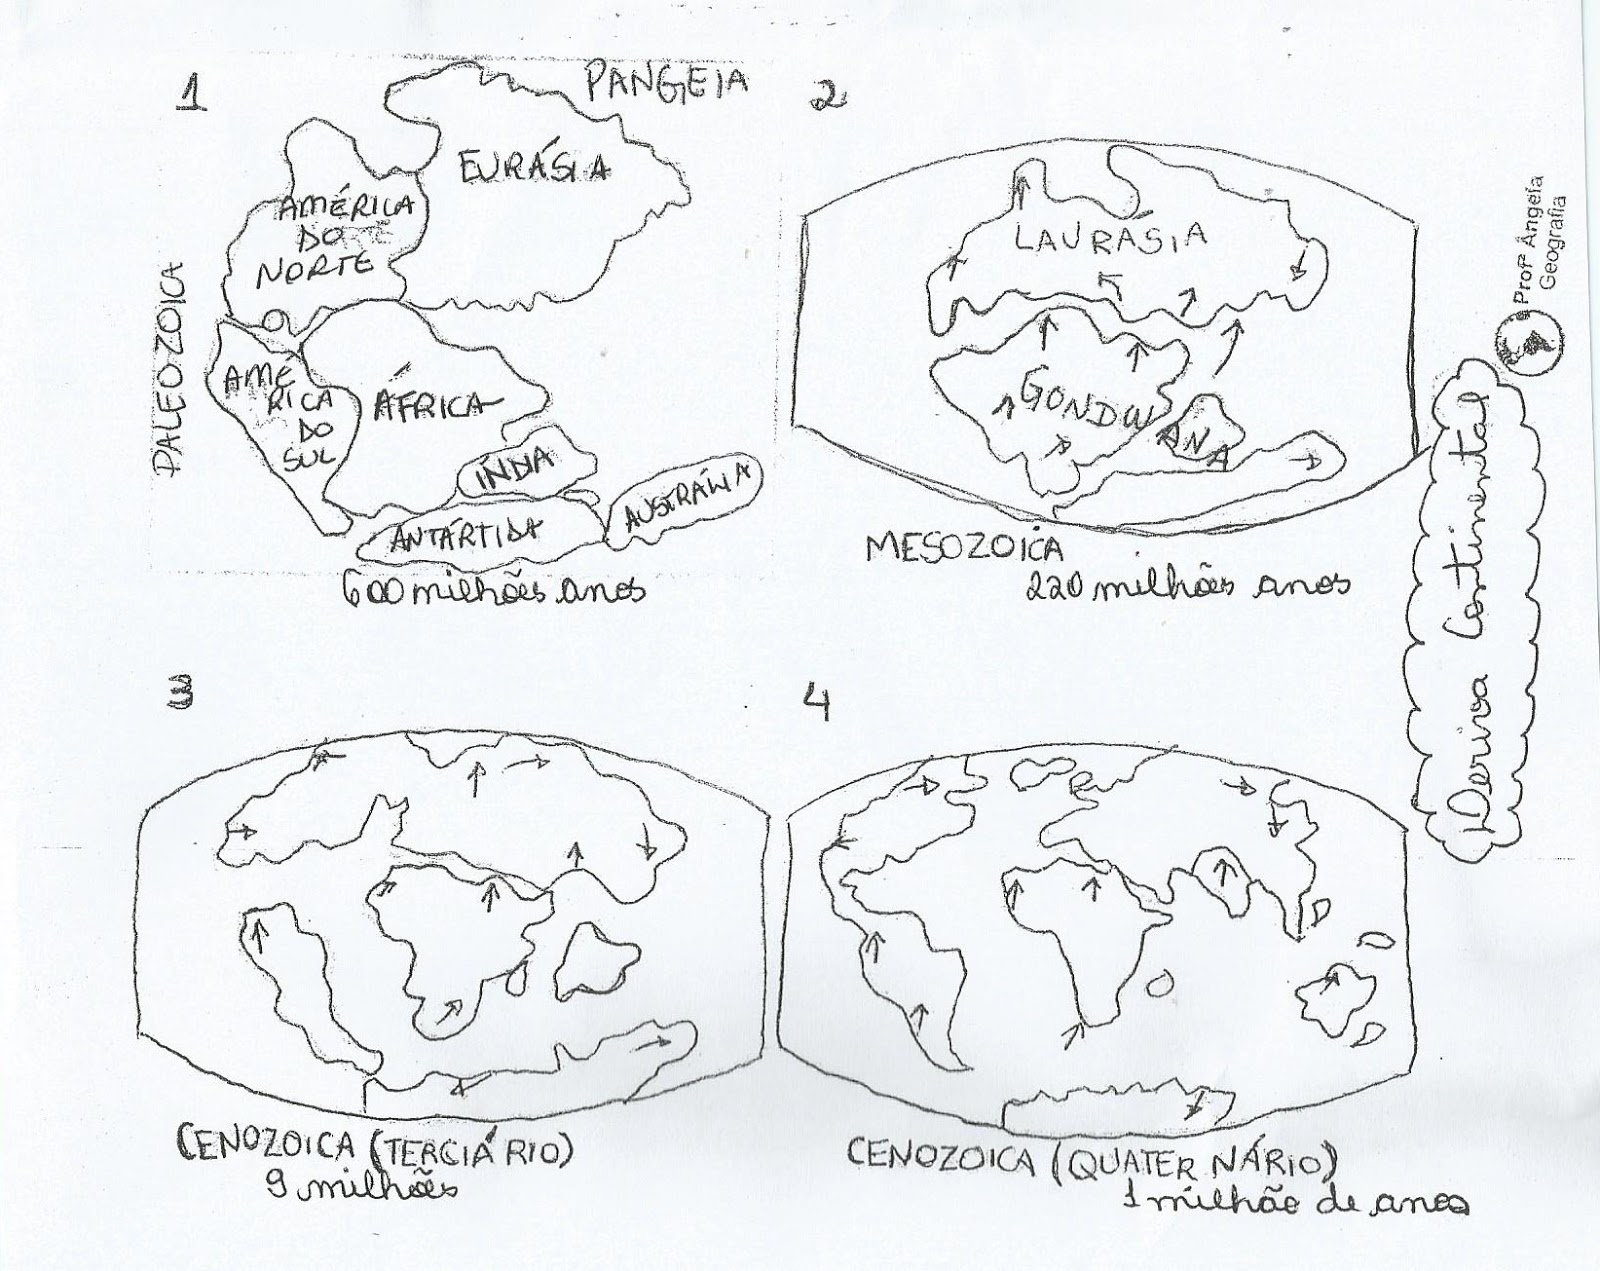 1
PANGEIA
EURÁSIA
AMÉRICA
DO
NORTE
PALEOZOICA
AMÉ
RICA
DO
SUL
ÁFRICA
ÍNDIA
ANTÁRTIDA
AUSTRÁLIA
600 milhões anos
2
LAURÁSIA
GONDWANA
MESOZOICA
220 milhões anos
Profª Ângela
Geografia
Deriva Continental
3
CENOZOICA (TERCIÁRIO)
9 milhões
4
CENOZOICA (QUATERNÁRIO)
1 milhão de anos